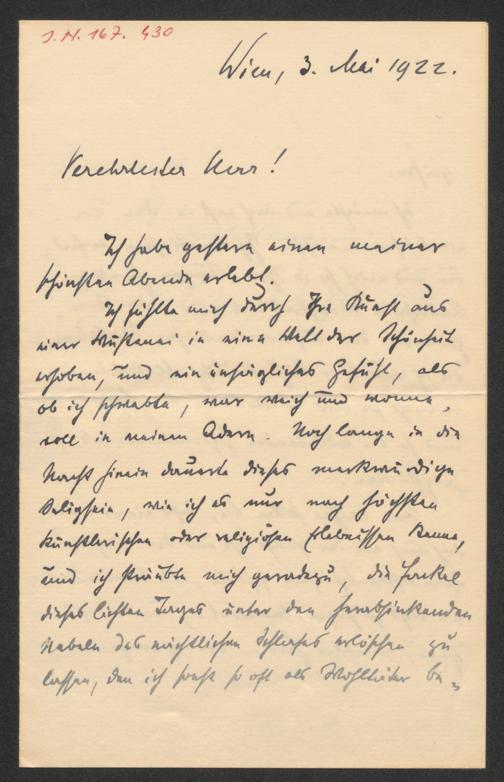 J.N. 167.430
Wien, 3. Mai 1922.
Verehrtester Herr!
Ich habe gestern einen meiner
schönsten Abende erlebt.
Ich fühlte mich durch Ihre Kunst aus
einer Wüstenei in eine Welt der Schönheit
erhoben, und ein unsägliches Gefühl, als
ob ich schwebte, war weich und wonne,
voll in meinen Adern. Noch lange in die
Nacht hinein dauerte dieses merkwürdige
Seligsein, wie ich es nur nach höchsten
künstlerischen oder religiösen Erlebnissen kenne,
und ich sträubte mich geradezu, die Fackel
dieses lichten Tages unter den herabsinkenden
Nebeln des nächtlichen Schlafes erlöschen zu
lassen, den ich sonst so oft als Wohltäter be-